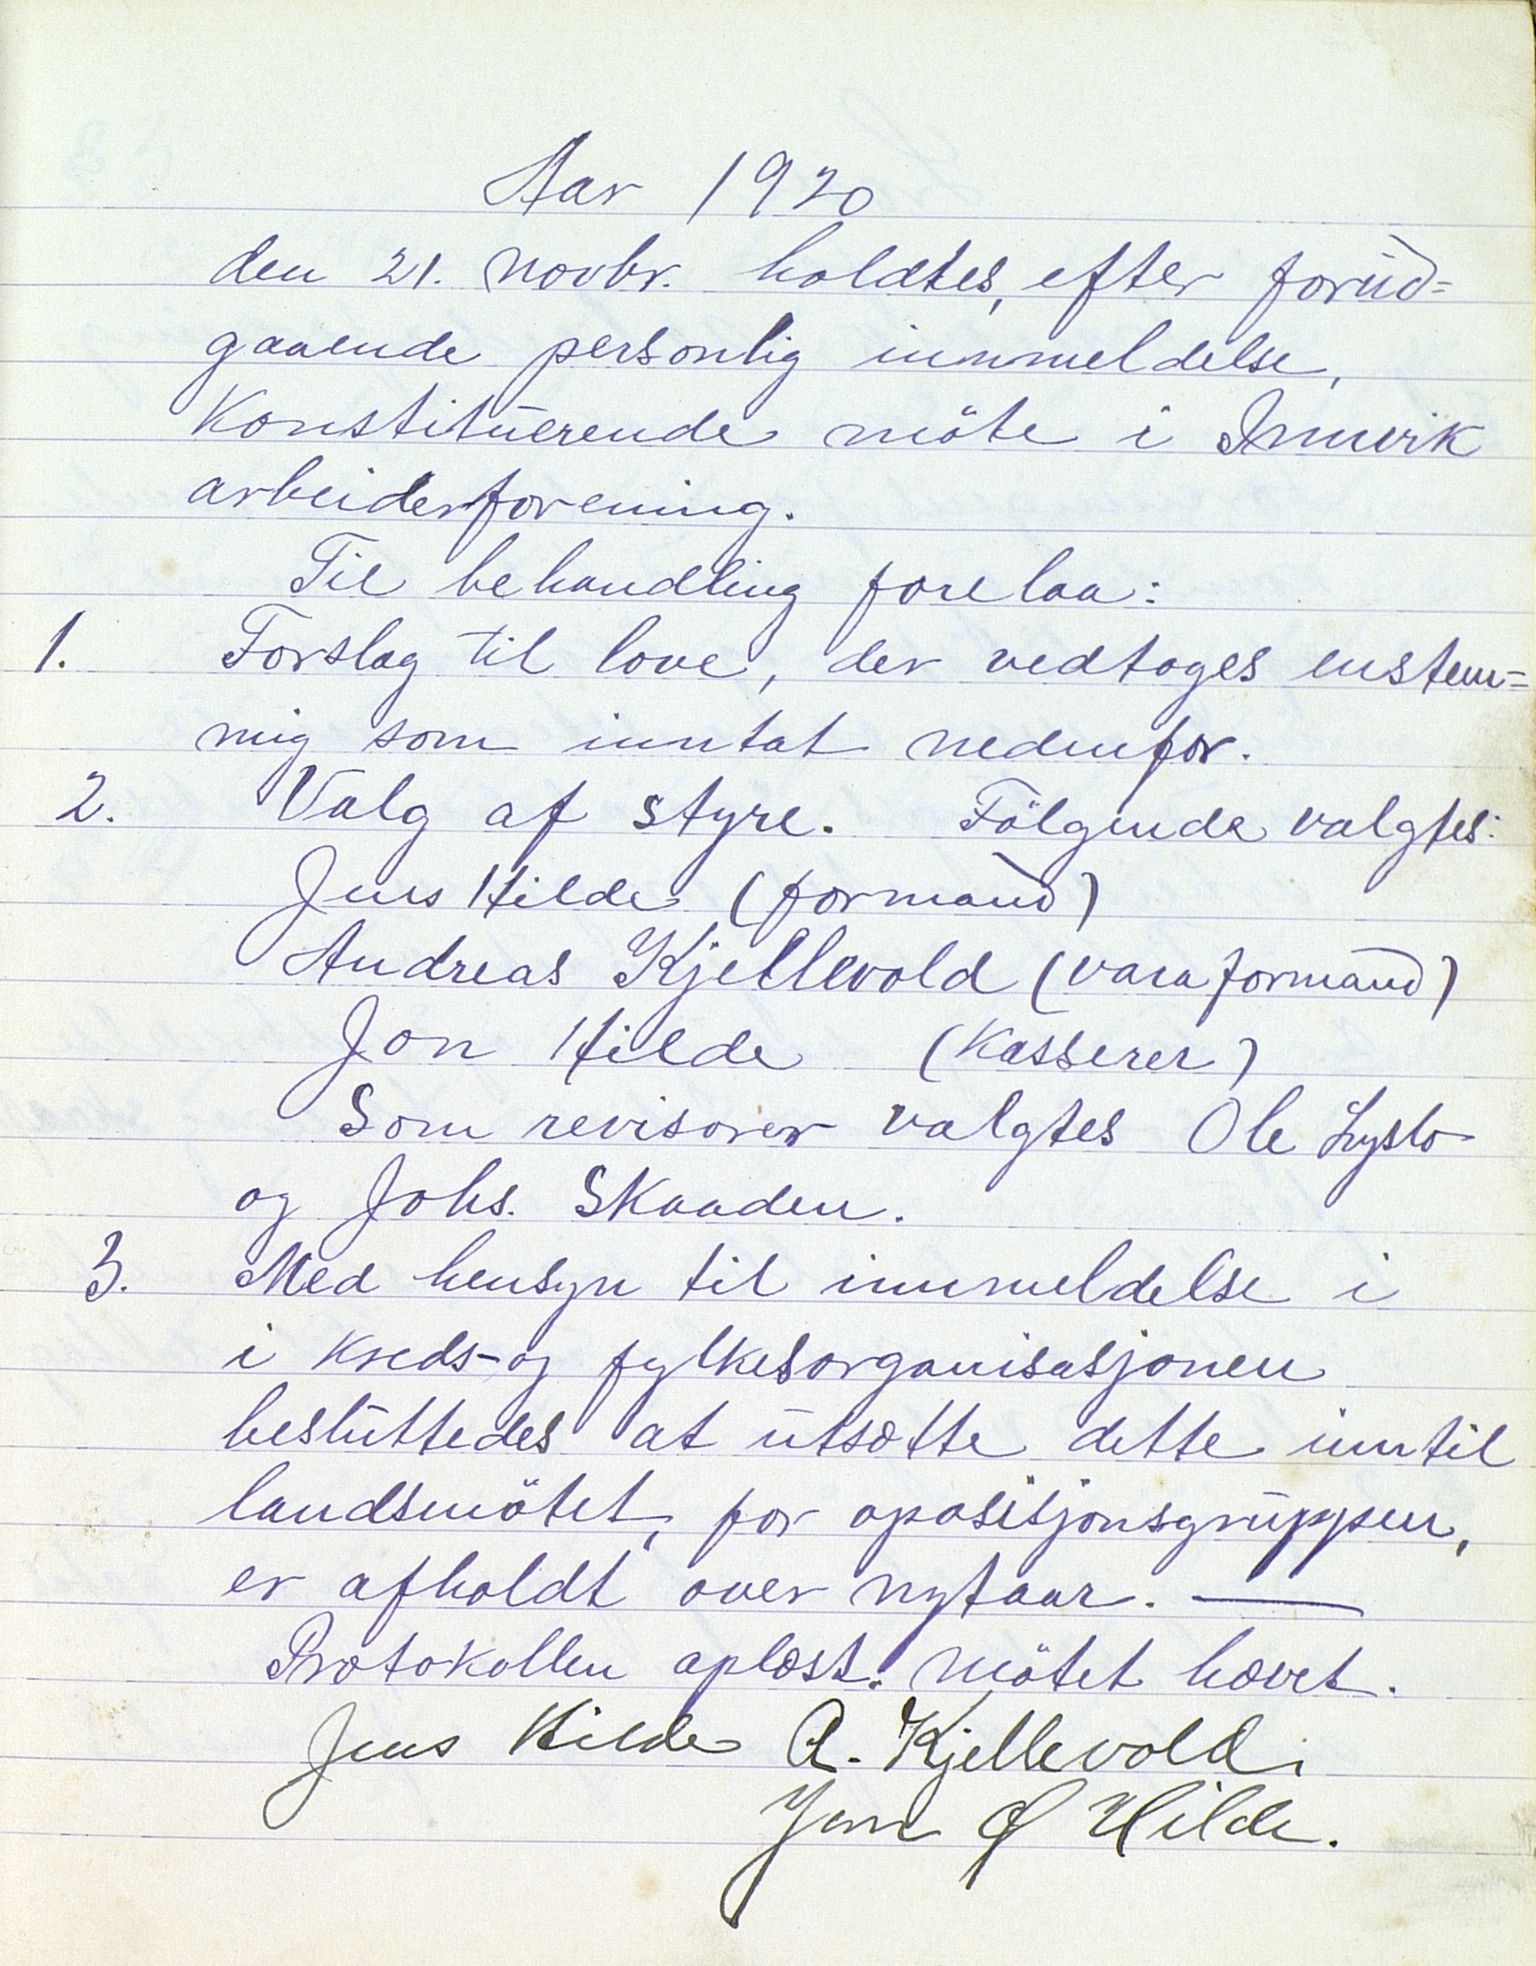 Aar 1920
den 21. novbr. holdtes, efter forud=
gaaende personlig innmeldelse,
Konstituerende möte i Innvik
arbeiderforening.
Til behandling forelaa:
1. Forslag til love, der vedtoges enstem=
mig som inntat nedenfor.
2. Valg af styre. Fölgende valgtes:
Jens Hilde (formand)
Andreas Kjellevold (varaformand)
Jon Hilde (Kasserer)
Som revisorer valgtes Ole Lyslo
og Johs. Skaaden.
3. Med hensyn til innmeldelse i
i Kreds- og fylkesorganisasjonen
besluttedes at utsætte dette inntil
landsmötet, for oposisjonsgruppen,
er afholdt over nytaar. —
Protokollen oplæst. Mötet hævet.
Jens Hilde A. Kjellevold.
Jon Ø Hilde.